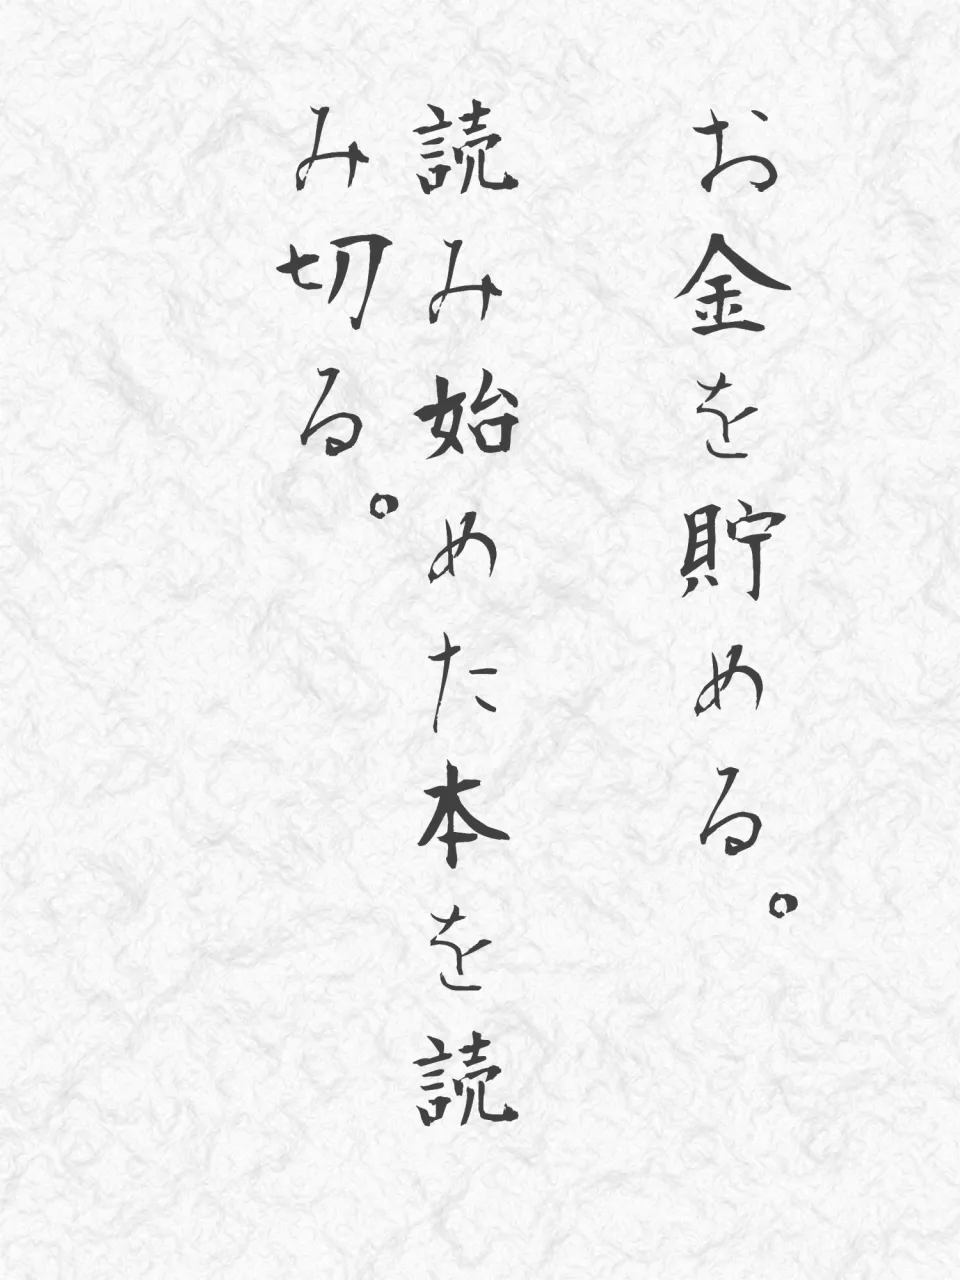 お金を貯める。
読み始めた本を読
み切る。